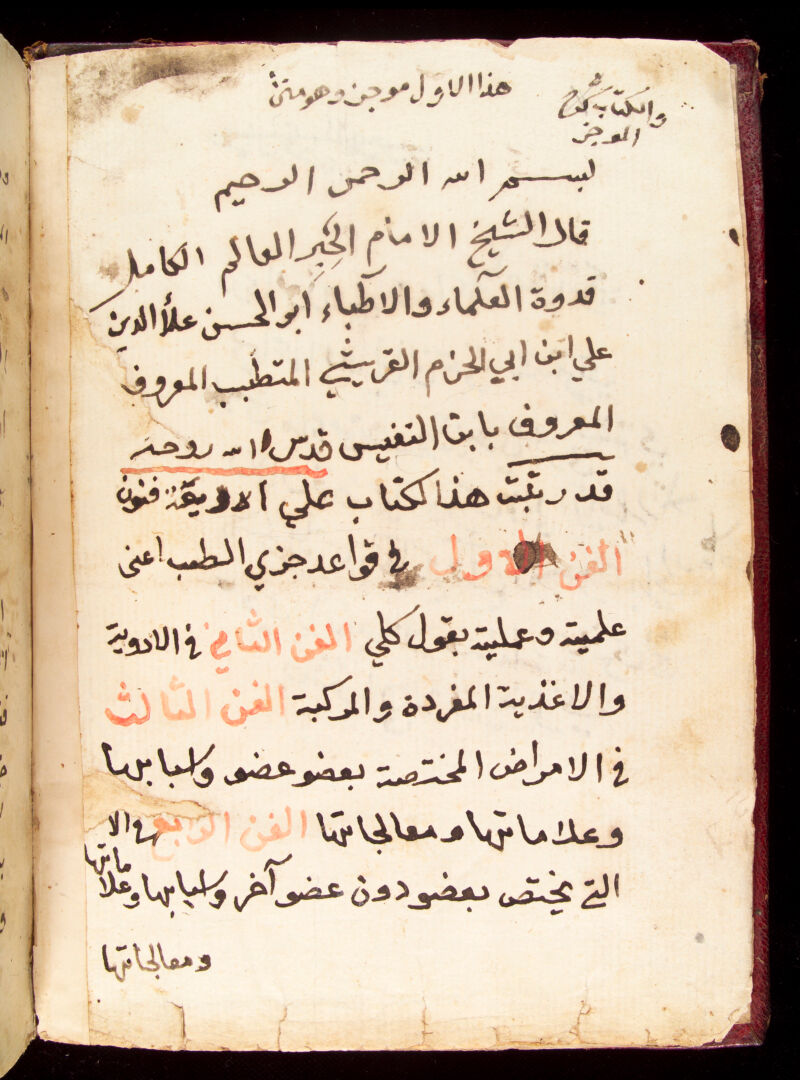 هذا الاول موجز وهو متن
والكتاب شرح
الموجز
بسم الله الرحمن الرحيم
قال الشيخ الامام الحبر العالم الكامل
قدوة العلماء والاطباء ابو الحسن علاء الدين
علي ابن ابي الحزم القريشي المتطبب المعروف
المعروف بابن النفيس قدس الله روحه
قد رتبت هذا لكتاب علي الاربعة فنون
الفن الاول في قواعد جزي الطب اعنى
علمية وعملية بقول كلي الفن الثاني في الادوية
والاغذية المفردة والمركبة الفن الثالث
في الامراض المختصة بعضو عضو واسبابها
وعلاماتها ومعالجاتها الفن الرابع في الا
التي يختص بعضو دون عضو آخر واسبابها وعلا
ماتها
ومعالجاتها